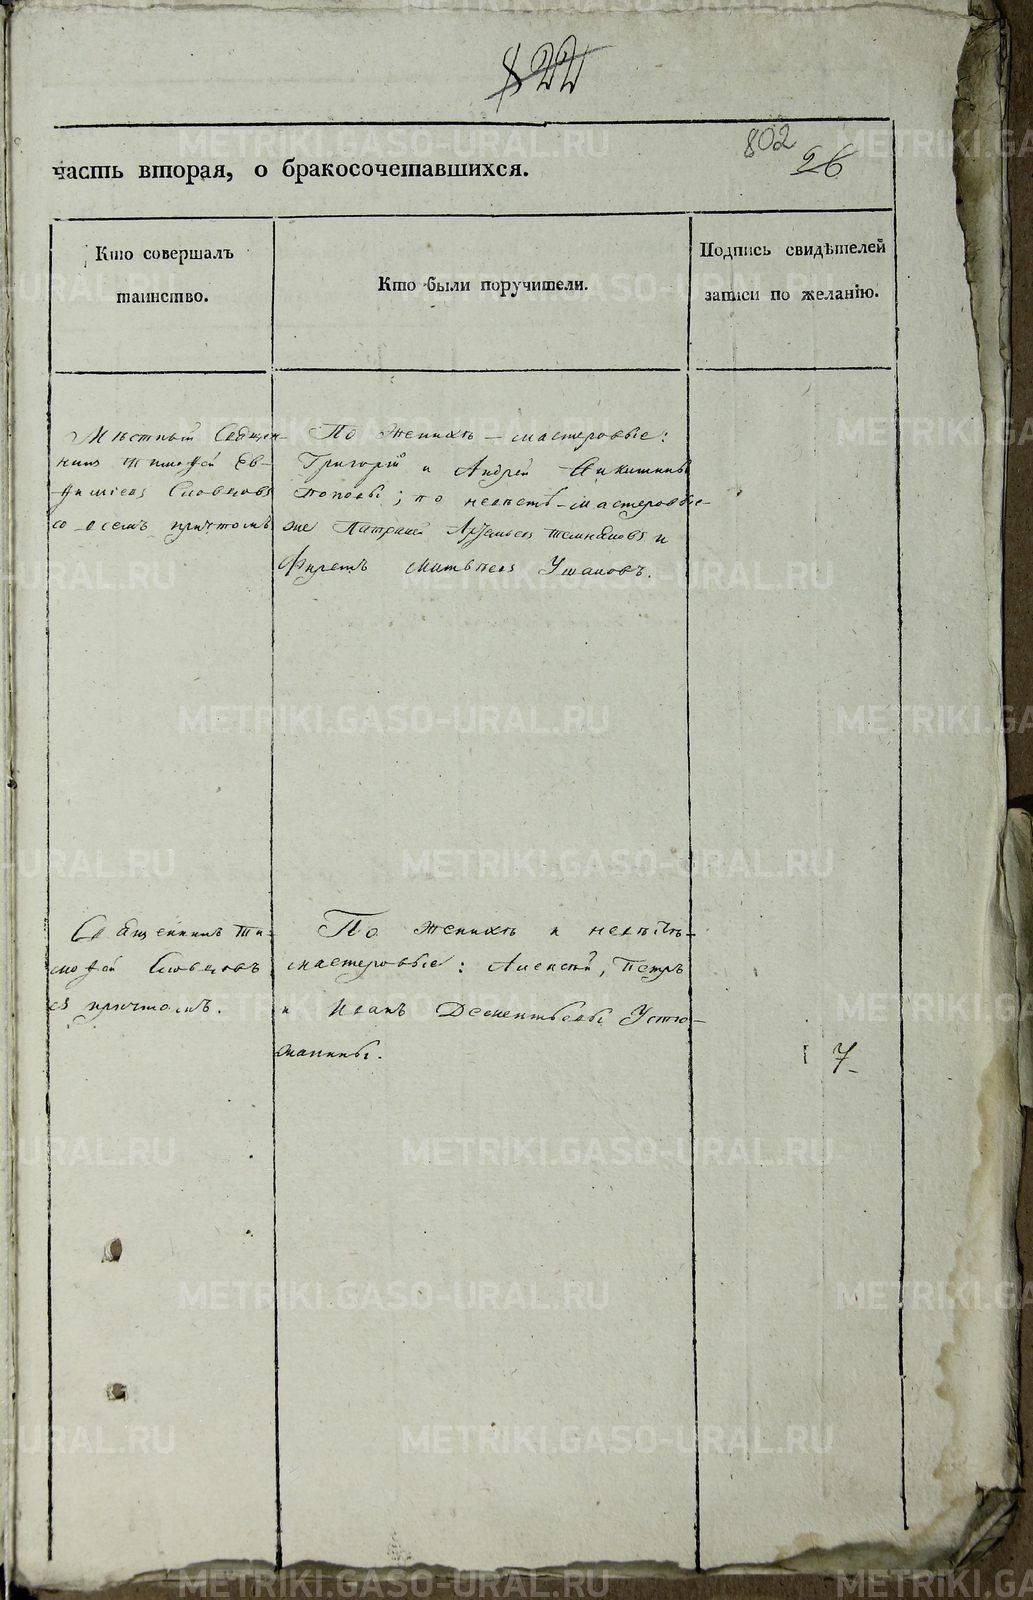 822
802
26
часть вторая, о бракосочетавшихся.
Кто совершалъ
таинство.
Кто были поручители.
Подпись свидѣтелей
записи по желанію.
Мѣстный Священ-
никъ Тимофей Ев-
фимiевъ Словцовъ
со всемъ причтомъ
По женихѣ – мастеровые:
Григорій и Андрей Никитины
Поповы; по невестѣ – мастеровые
же Патрикей Артемьевъ и
Филетъ Матвѣевъ Ушаковъ.
Священникъ Ти-
мофей Словцовъ
съ причтомъ.
По женихѣ и невѣстѣ
мастеровые: Алексѣй, Петръ
и Иванъ Дементьевы Устю-
жанины.
7
METRIKI.GASO-URAL.RU